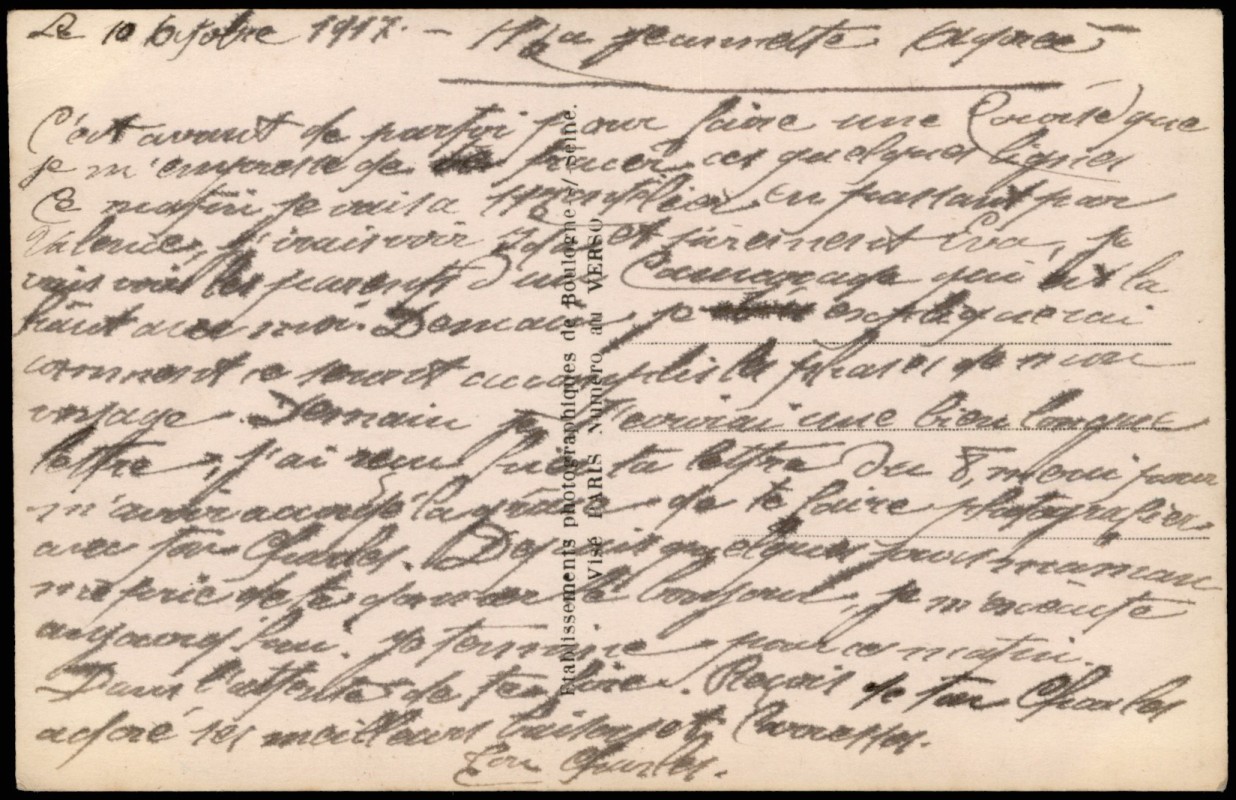 Le 10 Octobre 1917. - Ma Jeannette adorée
C'est avant de partir pour faire une Course que
je m'empresse de tracer ces quelques lignes
Ce matin je vais a Montélier en passant par
Valence, j'irais voir et surement Eva, je
vais voir les parents d'un Camarade qui est la
haut avec moi. Demain je expliquerai
comment ce seront accomplis les phases de mon
voyage. Demain je t'ecrirai une bien longue
lettre, j'ai reçu hier ta lettre du 8, merci pour
m'avoir accordé la grâce de te faire photografier
avec ton Charles. Depuis quelques jours maman
me prie de te donner le bonjour, je m'execute
aujourd'hui. Je termine pour ce matin.
Dans l'attente de te lire. Reçois de ton Charles
adoré ses meilleurs baisers et Caresses.
Ton Charles.
Etablissements photographiques de Boulogne s/ Seine.
Visé PARIS Numéro au VERSO